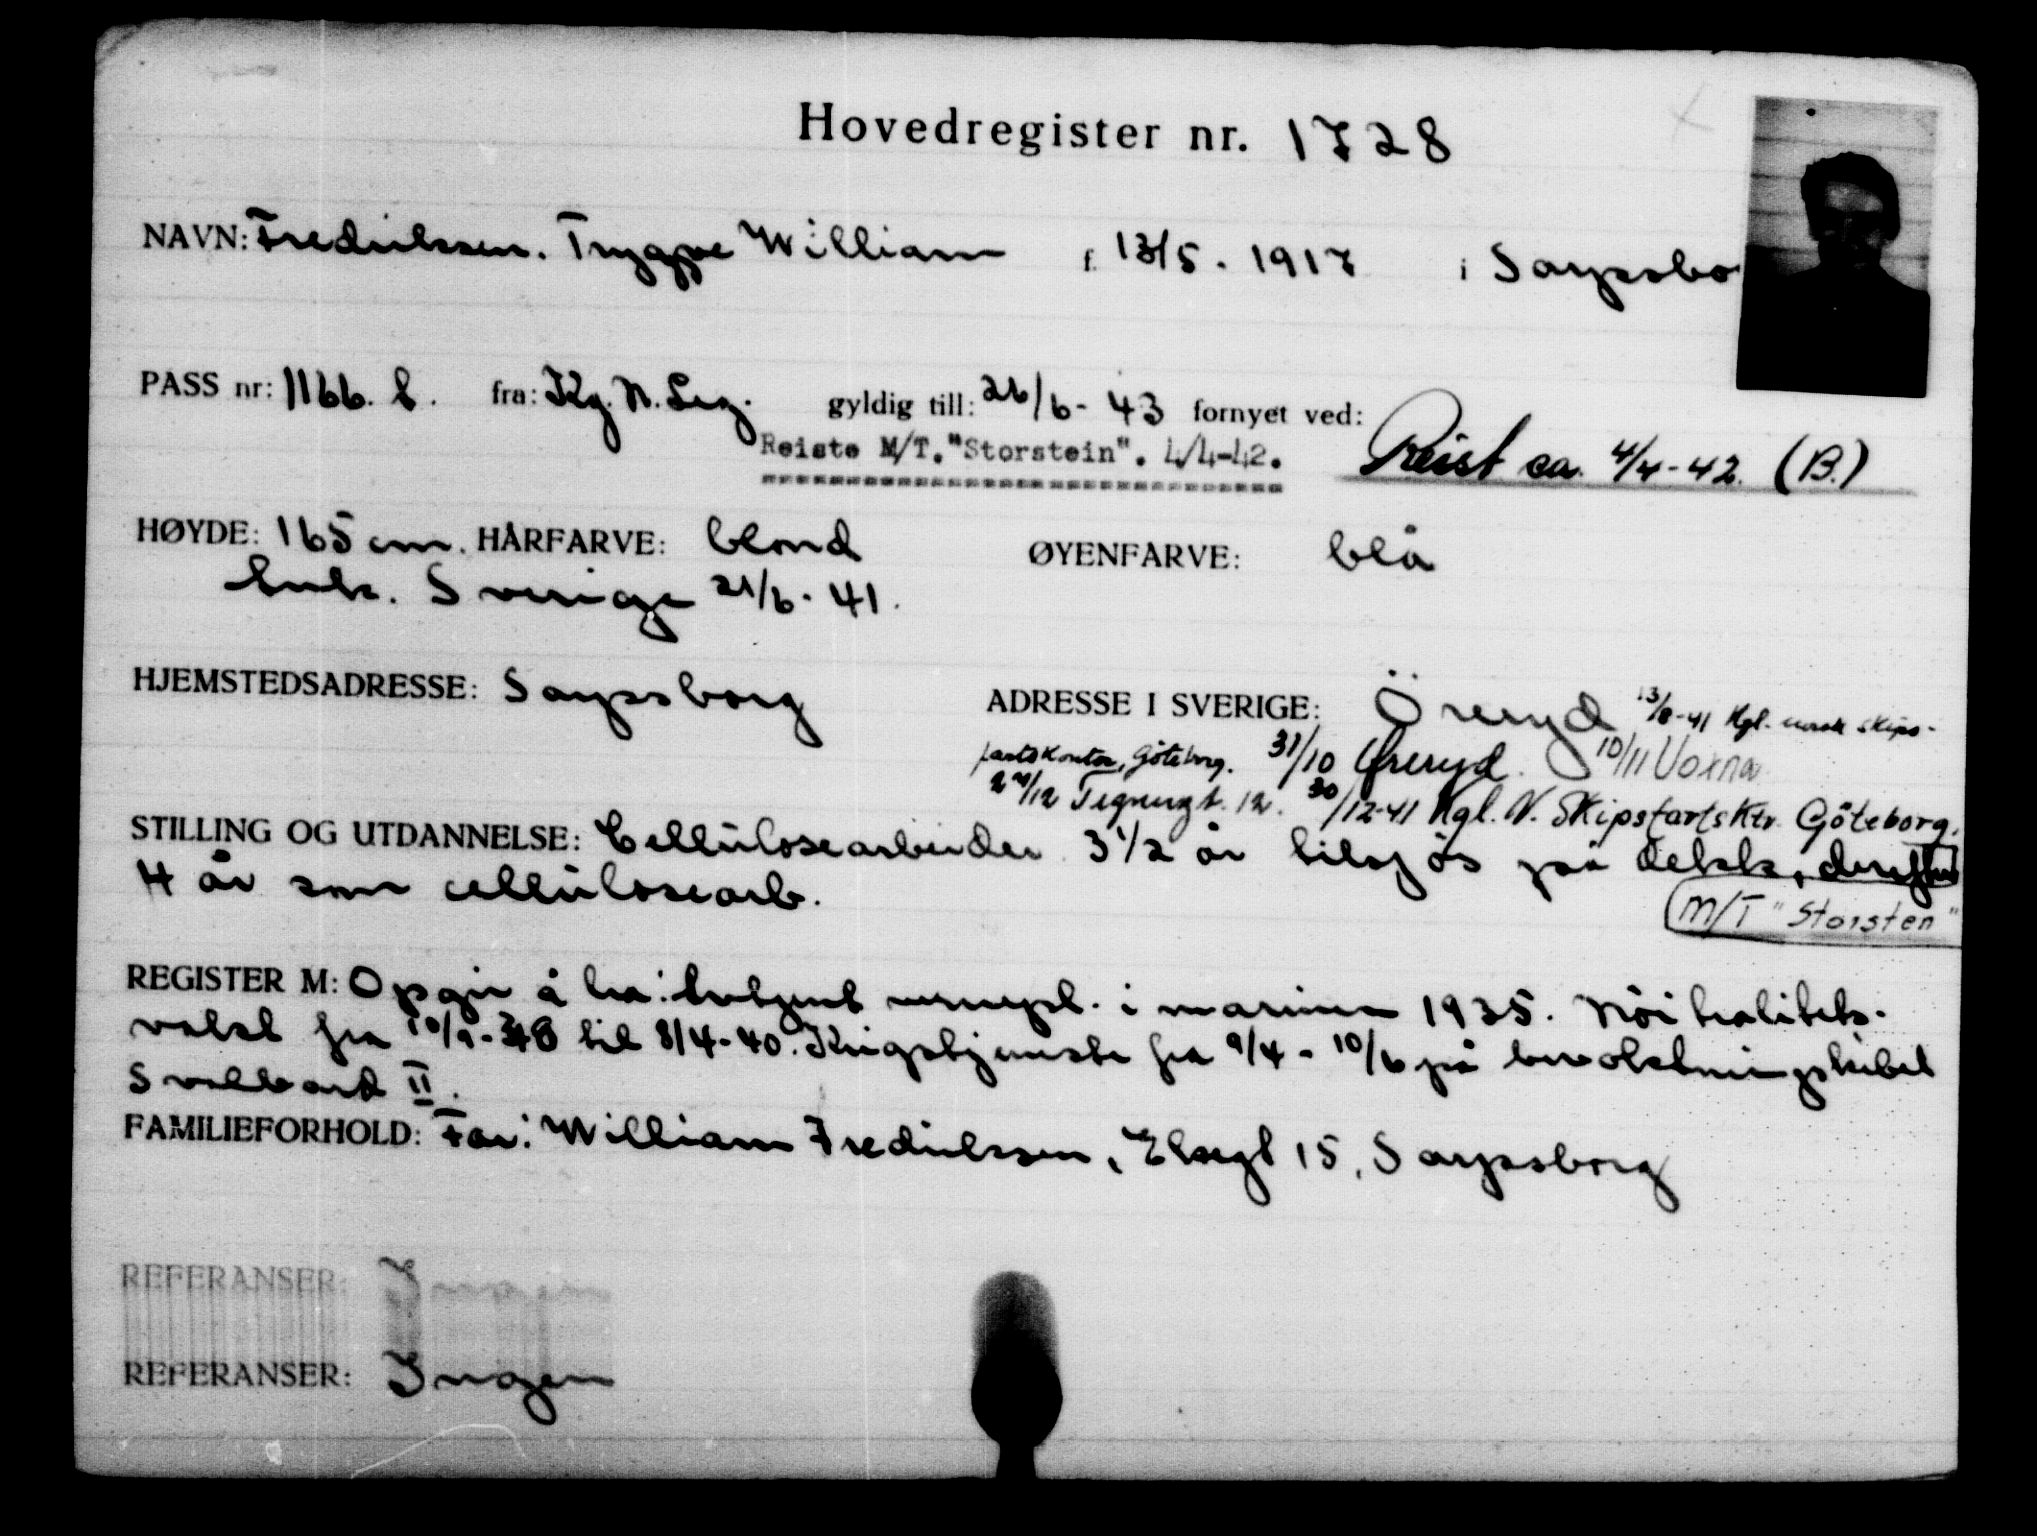 Hovedregister nr. 1728
NAVN: Fredriksen. Trygve William f. 13/5. 1917 i Sarpsbo
PASS nr: 1166. b. fra: Kg. N. Leg. gyldig till: 26/6-43 fornyet ved:
Reiste M/T."Storstein". 4/4-42. Reist ca. 4/4-42. (B.)
HØYDE: 165 cm. HÅRFARVE: blond ØYENFARVE: blå
Ank. Sverige 21/6-41.
HJEMSTEDSADRESSE: Sarpsborg ADRESSE I SVERIGE: Öreryd 13/8-41 Kgl. norsk skips-
fartskontor, Göteborg. 31/10 Öreryd. 10/11 Voxna
29/12 Tegnergt. 12. 30/12-41 Kgl. N. Skipsfartsktr. Göteborg.
STILLING OG UTDANNELSE: Cellülosearbeider 3 1/2 år tilsjös på dekk, derefter
4 år som cellülosearb.
M/T "Storsten"
REGISTER M: Opgir å ha: Avtjent vernepl. i marinen 1935. Nöitralitets-
vakt fra 10/9-39 til 8/4-40. Krigstjeneste fra 9/4 - 10/6 på bevoktningskibet
Svalbard II.
FAMILIEFORHOLD: Far: William Fredriksen, 15, Sarpsborg
REFERANSER: Ingen
REFERANSER: Ingen